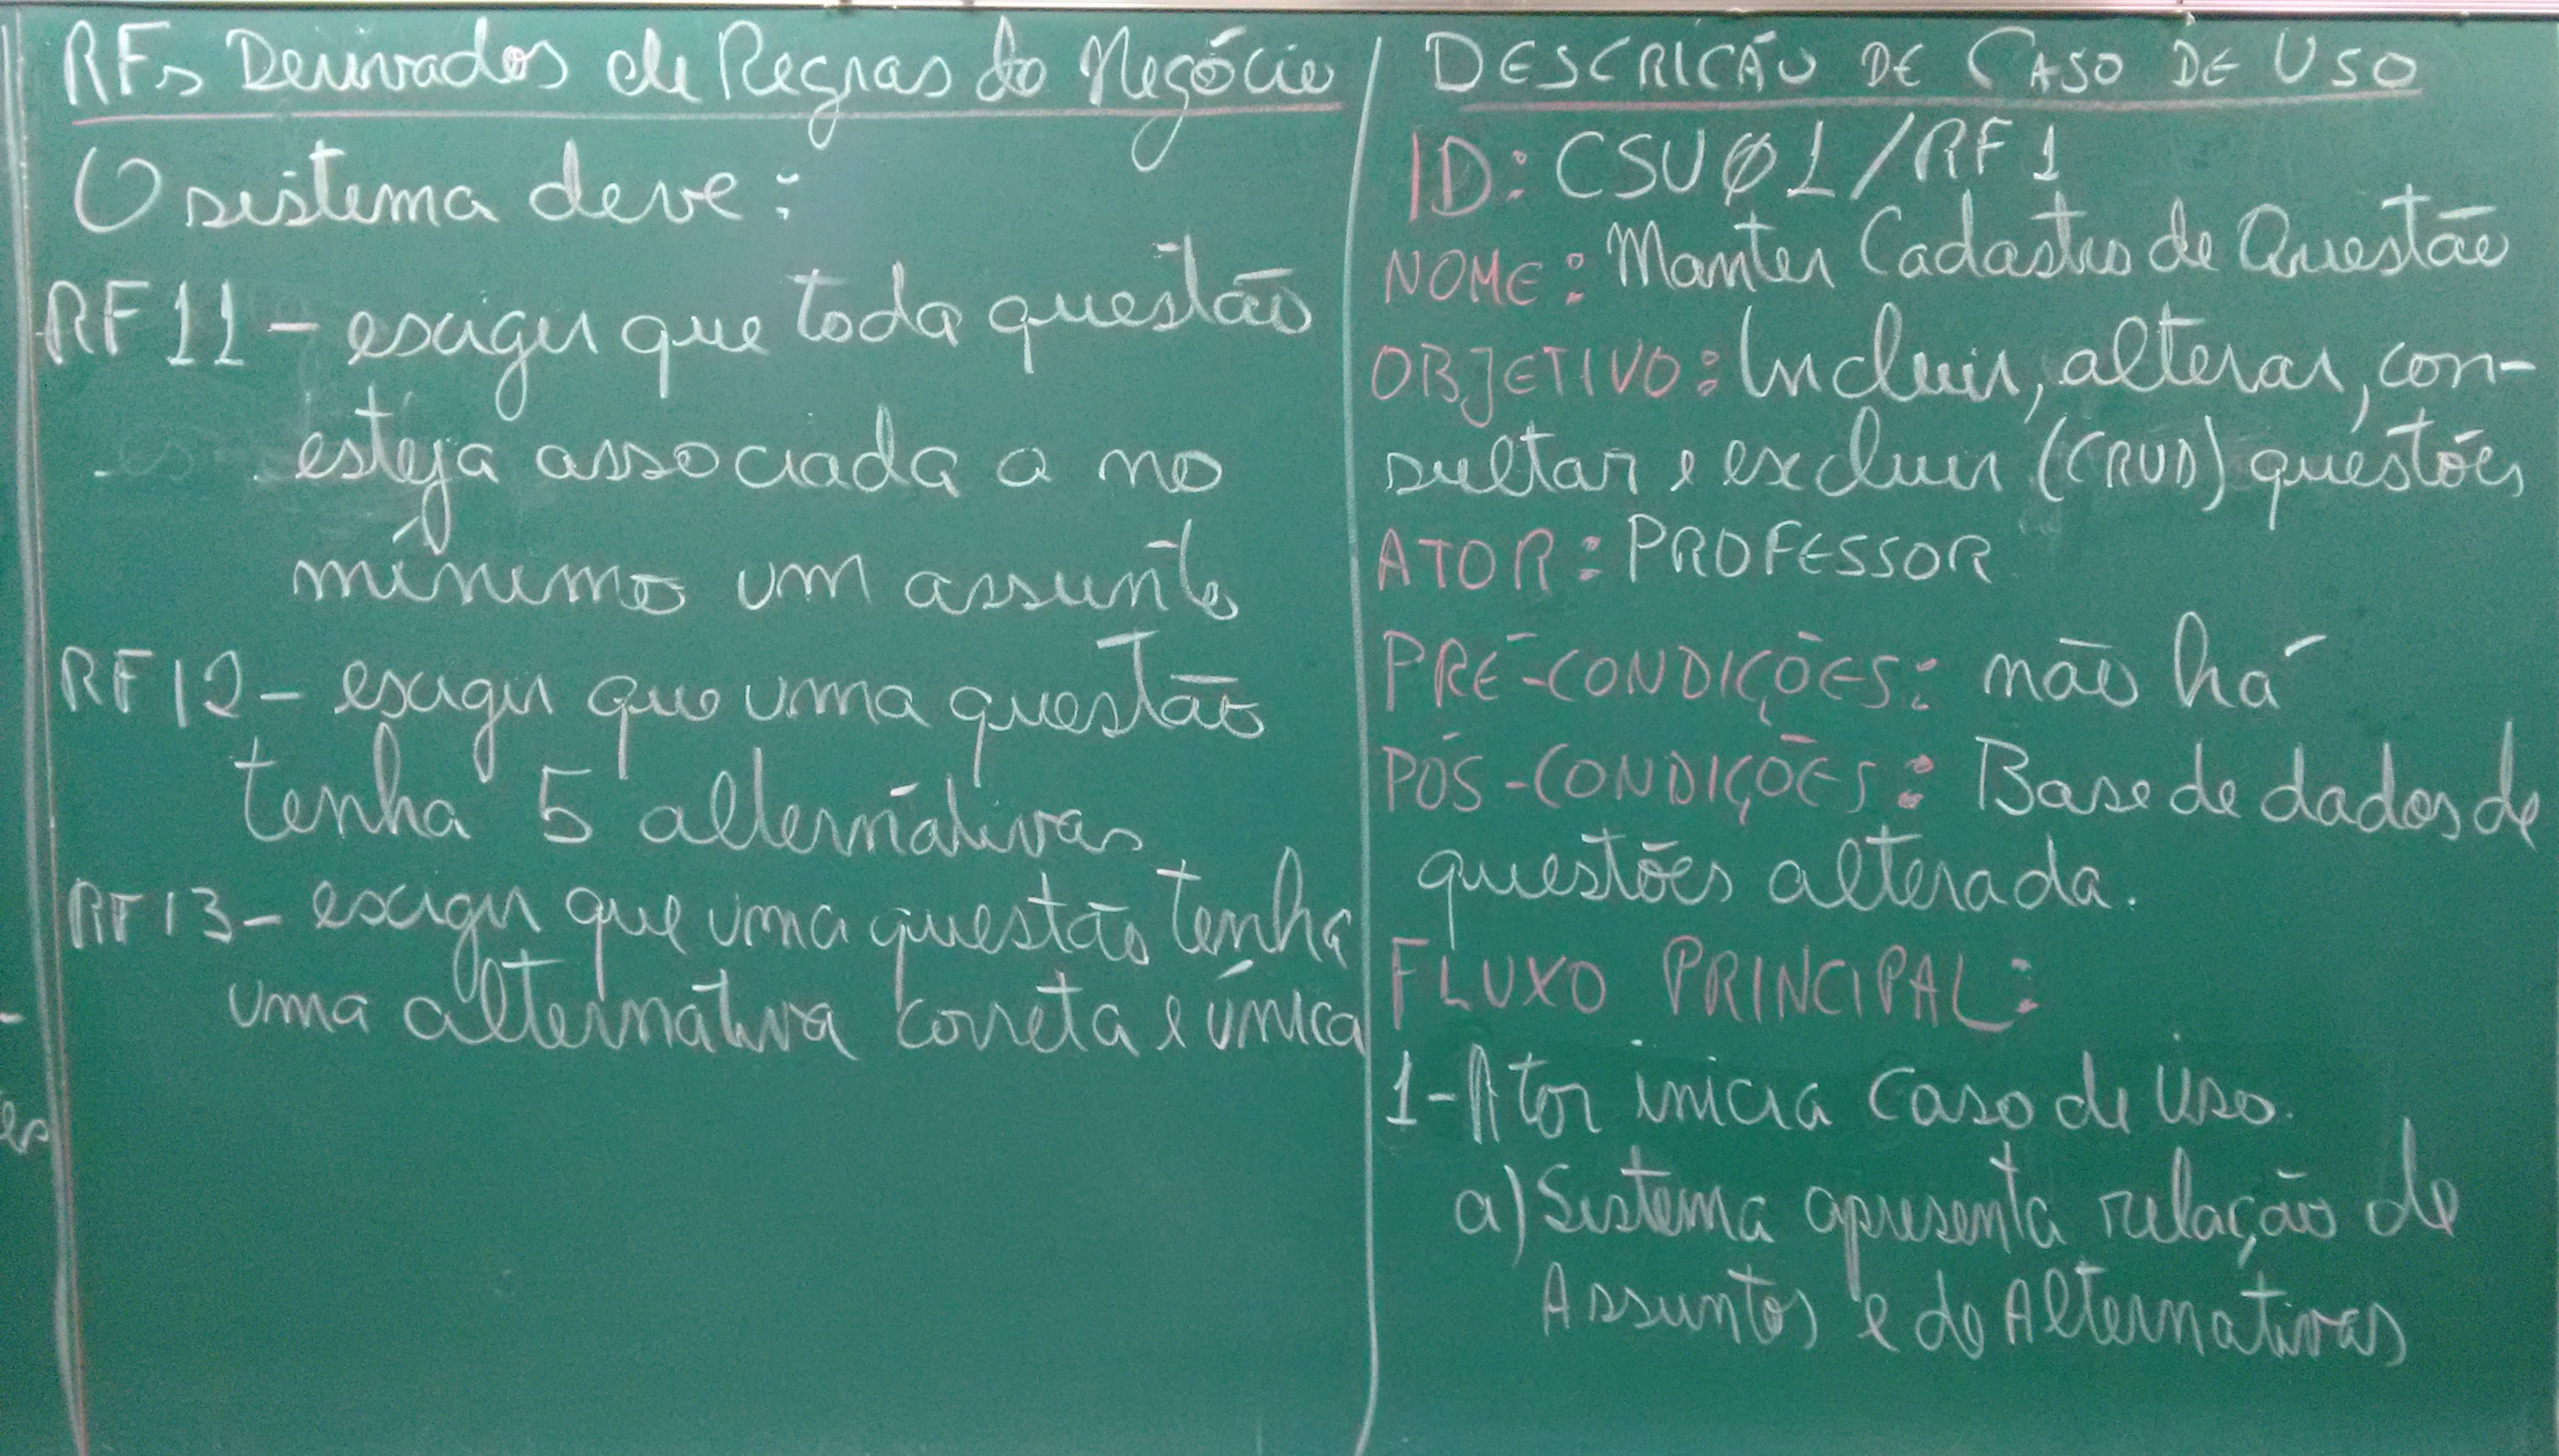 RFs Derivados de Regras do Negócio
O sistema deve:
RF11 - exigir que toda questão
esteja associada a no
mínimo um assunto
RF12 - exigir que uma questão
tenha 5 alternativas
RF13 - exigir que uma questão tenha
uma alternativa correta e única
DESCRIÇÃO DE CASO DE USO
ID: CSU01/RF1
NOME: Manter Cadastro de Questão
OBJETIVO: Incluir, alterar, con-
sultar e excluir (CRUD) questões
ATOR: PROFESSOR
PRÉ-CONDIÇÕES: não há
PÓS-CONDIÇÕES: Base de dados de
questões alterada.
FLUXO PRINCIPAL:
1-Ator inicia Caso de Uso.
a) Sistema apresenta relação de
Assuntos e de Alternativas